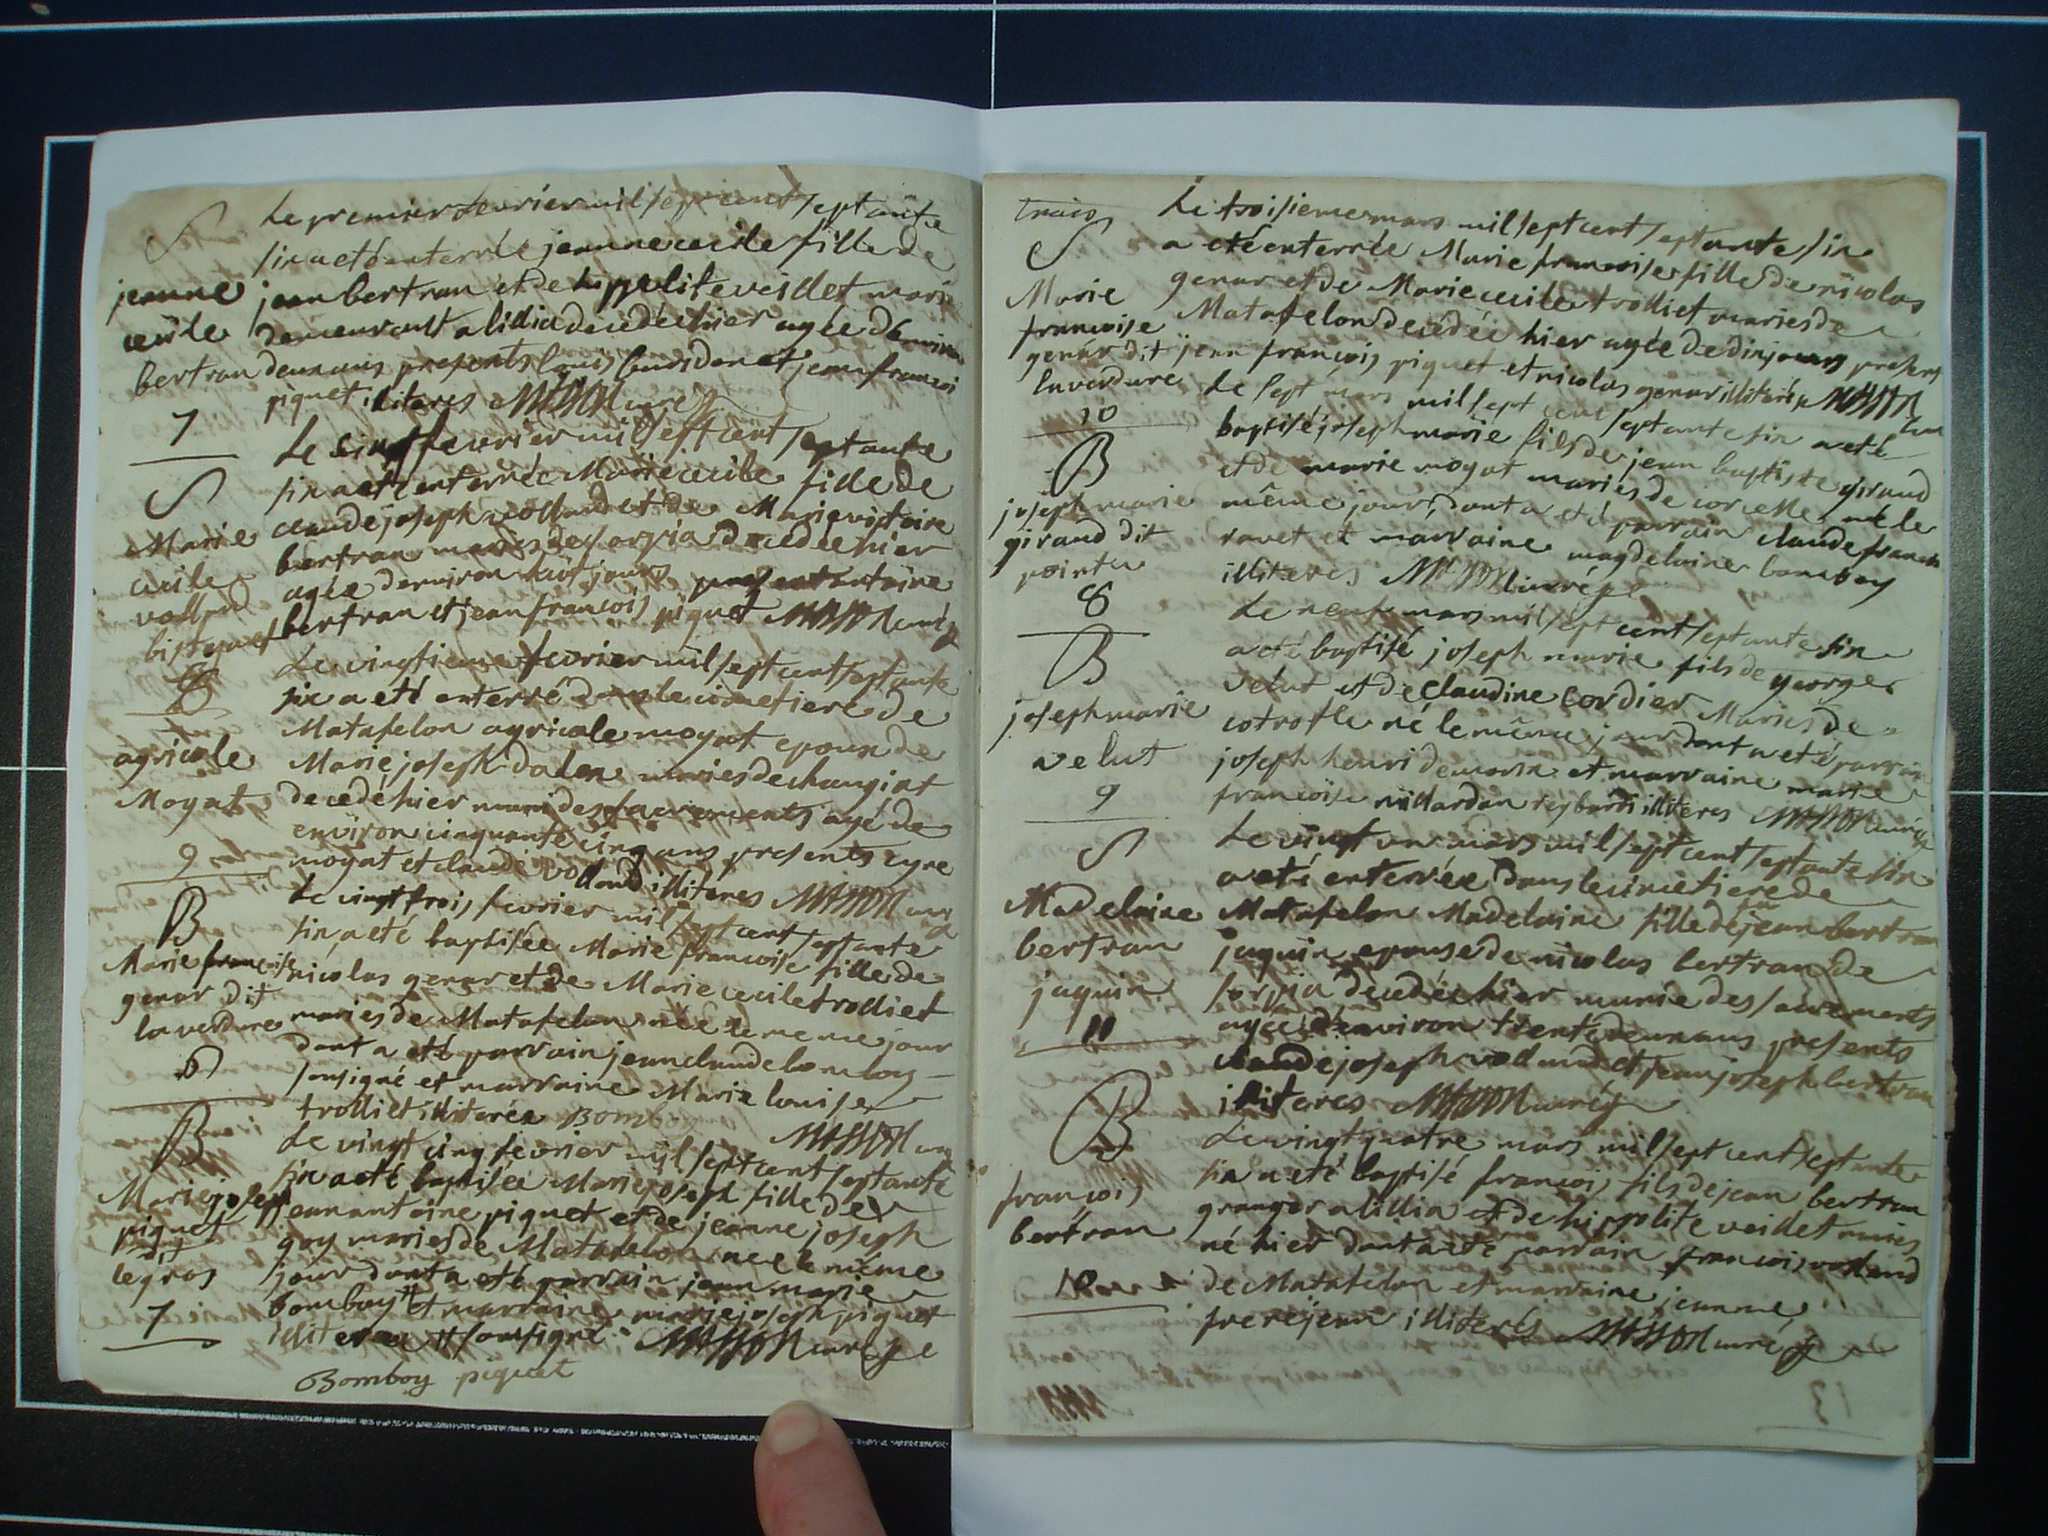 S
jeanne
cecile
bertran
7
Le premier fevrier mil sept cent septante
six a eté enterrée jeanne cecile fille de
jean bertran et de hippolite veillet mariés
demeurant a lillia decedée hier agée denviron
deux ans presents louis bourdon et jean francois
piquet illiteres MASSON curé
S
Marie
cecile
volland
bistequet
8
Le cinq fevrier mil sept cent septante
six a eté enterrée Marie cecile fille de
claude joseph volland et de Marie victoire
bertran mariés de sorpia decedée hier
agée denviron huit jours present antoine
bertran et jean francois piquet MASSON curé
agricole
Moyat
9
Le vingtieme fevrier mil sept cent septante
six a eté enterré dans le cimetiere de
Matafelon agricole moyat epoux de
Marie joseph dalon mariés de changiat
decedé hier muni des sacrements agé de
environ cinquante cinq ans presents cyre
moyat et claude volland illiteres MASSON curé
B
Marie francoise
genar dit
la verdure
6
Le vingt trois fevrier mil sept cent septante
six a eté baptisée Marie francoise fille de
nicolas genar et de Marie cecile trolliet
mariés de Matafelon née le meme jour
dont a eté parrain jean claude bomboy
sousigné et marraine Marie louise
trolliet illiterée Bomboy
MASSON curé
B
Marie joseph
piquet
dit
legros
7
Le vingt cinq fevrier mil sept cent septante
six a eté baptisée Marie joseph fille de
jean antoine piquet et de jeanne joseph
goy mariés de Matafelon née le même
jour dont a eté parrain jean marie
bomboy et marraine marie joseph piquet
illiteree et sousigné MASSON curé
Bomboy piquet
S
Marie
francoise
genar dit
laverdure
10
Le troisieme mars mil sept cent septante six
a eté enterrée Marie francoise fille de nicolas
genar et de Marie cecile trolliet mariés de
Matafelon decedée hier agée de dix jours present
jean francois piquet et nicolas genar illiterés MASSON
curé
B
joseph marie
giraud dit
pointu
8
Le sept mars mil sept cent septante six a eté
baptisé joseph marie fils de jean baptiste giraud
et de marie moyat mariés de corcelle né le
même jour, dont a eté parrain claude francois
ravet et marraine magdelaine bomboy
illiteres MASSON curé
B
joseph marie
velut
9
Le neuf mars mil sept cent septante six
a eté baptisé joseph marie fils de george
velut et de claudine cordier Mariés de
cotrofle né le même jour dont a eté parrain
joseph henri demorin et marraine marie
francoise illiteres MASSON curé
S
Madelaine
bertran
jaquin
11
Le vingt un mars mil sept cent septante six
a eté enterrée dans le cimetiere de
Matafelon Madelaine fille de feu jean bertran
jaquin epouse de nicolas bertran de
sorpia decedée hier munie des sacrements
agée denviron trente deux ans presents
claude joseph volland et jean joseph bertran
illiteres MASSON curé
B
francois
bertran
10
Le vingt quatre mars mil sept cent septante
six a eté baptisé francois fils de jean bertran
granger a lillia et de hippolite veillet mariés
né hier dont a eté parrain francois volland
de Matafelon et marraine jeanne
frerejean illiterés MASSON curé